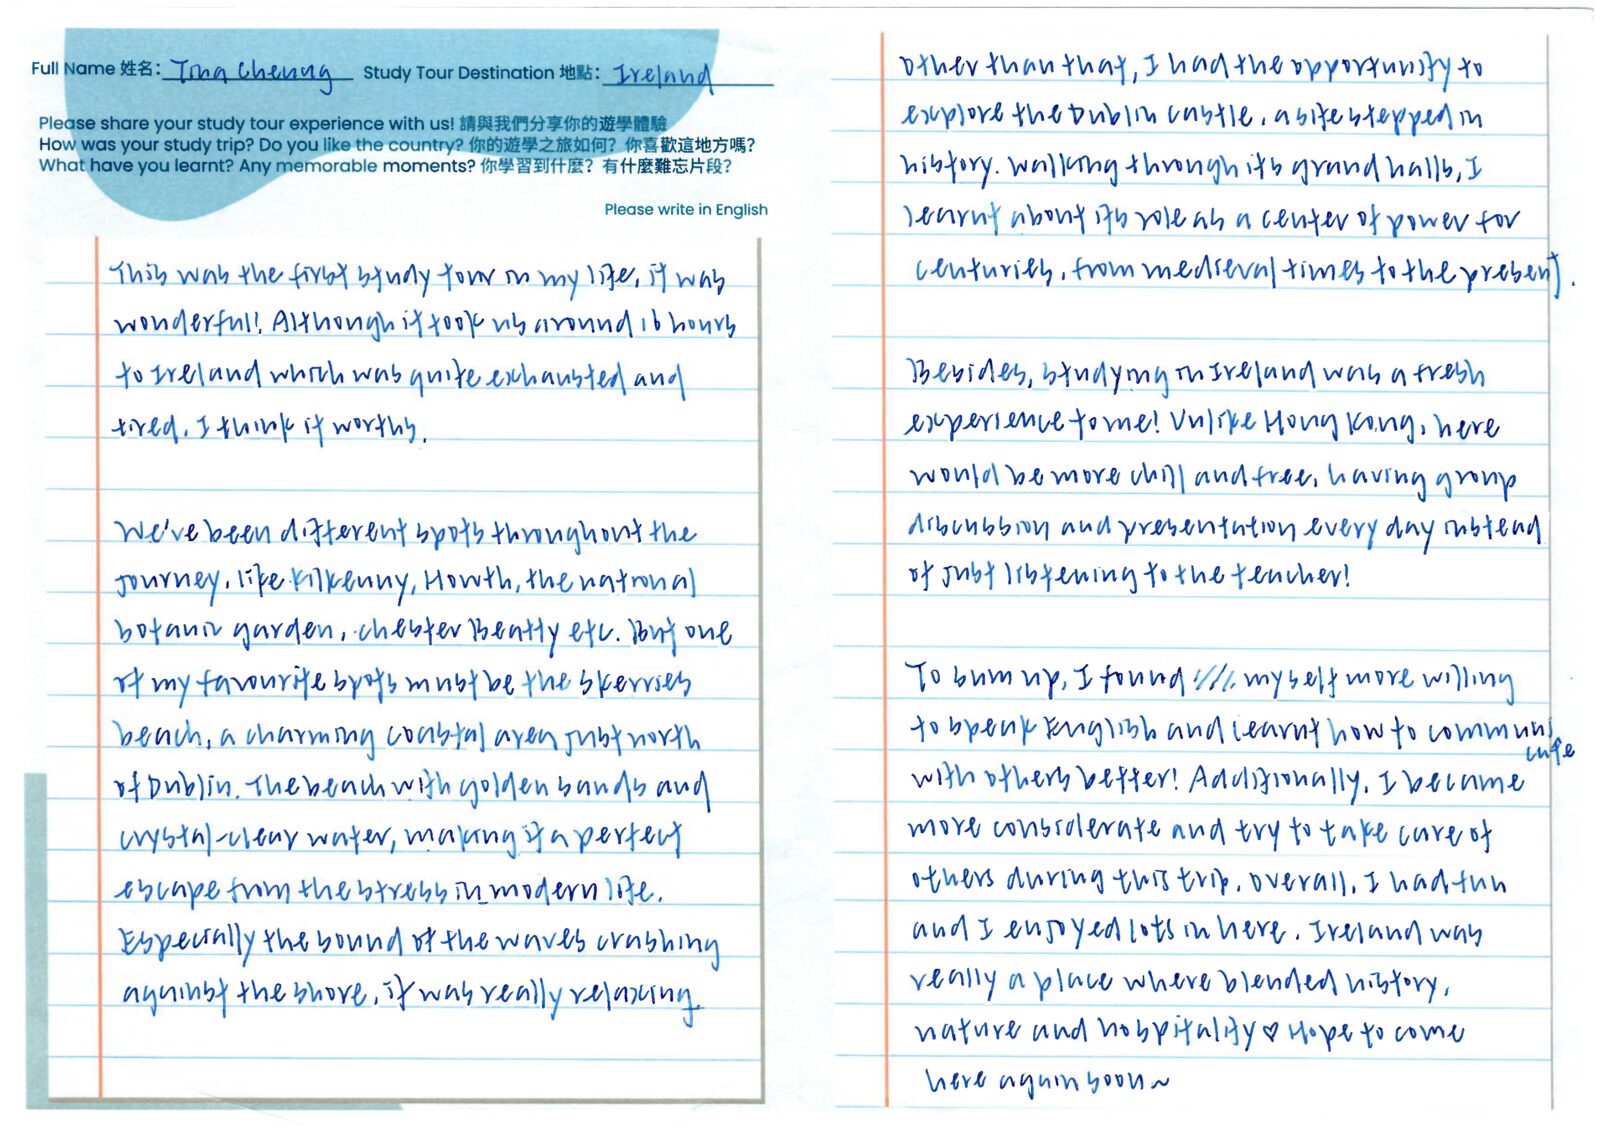 Full Name 姓名: Tina Cheung Study Tour Destination 地點: Ireland
Please share your study tour experience with us! 請與我們分享你的遊學體驗
How was your study trip? Do you like the country? 你的遊學之旅如何? 你喜歡這地方嗎?
What have you learnt? Any memorable moments? 你學習到什麼? 有什麼難忘片段?
Please write in English
This was the first study tour in my life, it was
wonderful! Although it took us around 16 hours
to Ireland which was quite exhausted and
tired, I think it worths.
We've been different spots throughout the
journey, like Kilkenny, Howth, the national
botanic garden, chester Beatty etc. But one
of my favourite spots must be the skerries
beach, a charming coastal area just north
of Dublin. The beach with golden sands and
crystal-clear water, making it a perfect
escape from the stress in modern life.
Especially the sound of the waves crashing
against the shore, it was really relaxing.
other than that, I had the opportunity to
explore the Dublin castle, a site stepped in
history. Walking through its grand halls, I
learnt about its role as a center of power for
centuries, from medieval times to the present.
Besides, studying in Ireland was a fresh
experience to me! Unlike Hong Kong, here
would be more chill and free, having group
discussion and presentation every day instead
of just listening to the teacher!
To sum up, I found myself more willing
to speak English and learnt how to communi
cate
with others better! Additionally, I became
more considerate and try to take care of
others during this trip. Overall, I had fun
and I enjoyed lots in here. Ireland was
really a place where blended history,
nature and hospitality ♡ Hope to come
here again soon~